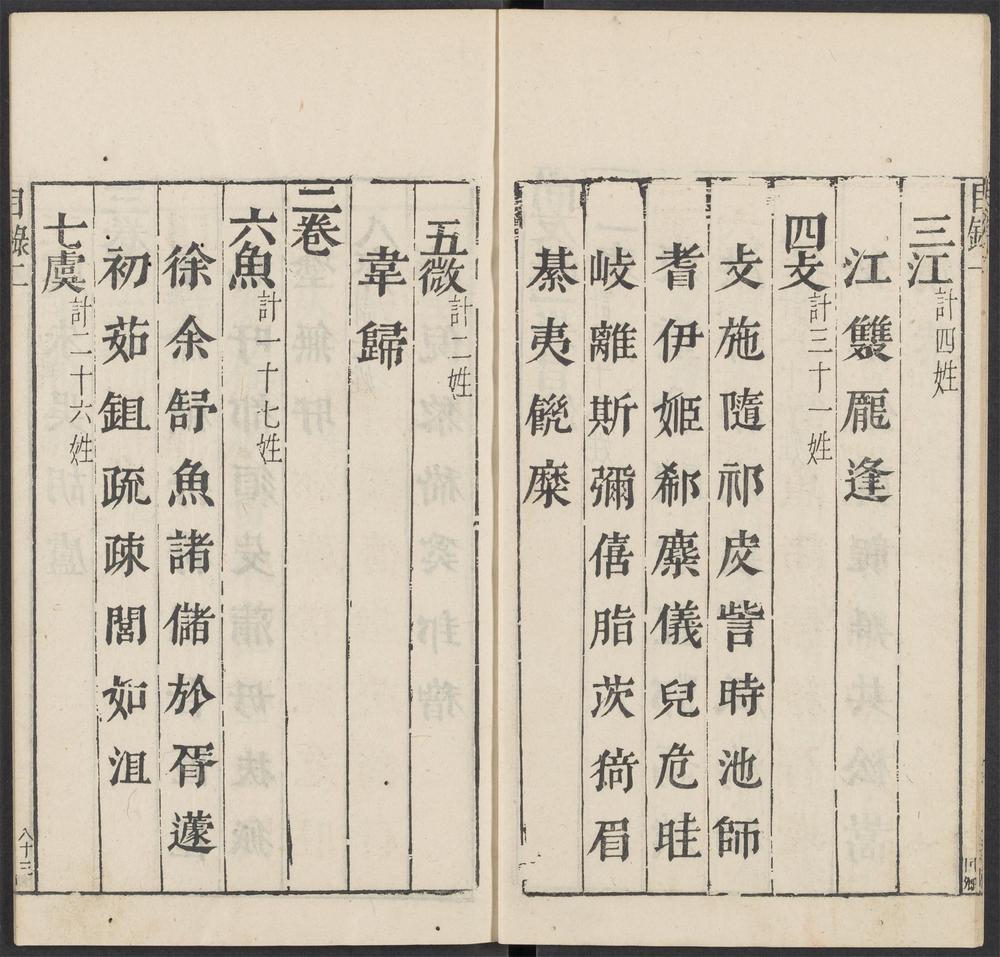 目錄一
三江計四姓
江雙龐逢
四支計三十一姓
支施隨祁皮訾時池師
耆伊姬郗麋儀兒危眭
岐離斯彌僖脂茨猗眉
綦夷
五微計二姓
韋歸
二卷
六魚計一十七姓
徐余舒魚諸儲於胥蘧
初茹鉏疏疎閭如沮
七虞計二十六姓
目錄二
八十三